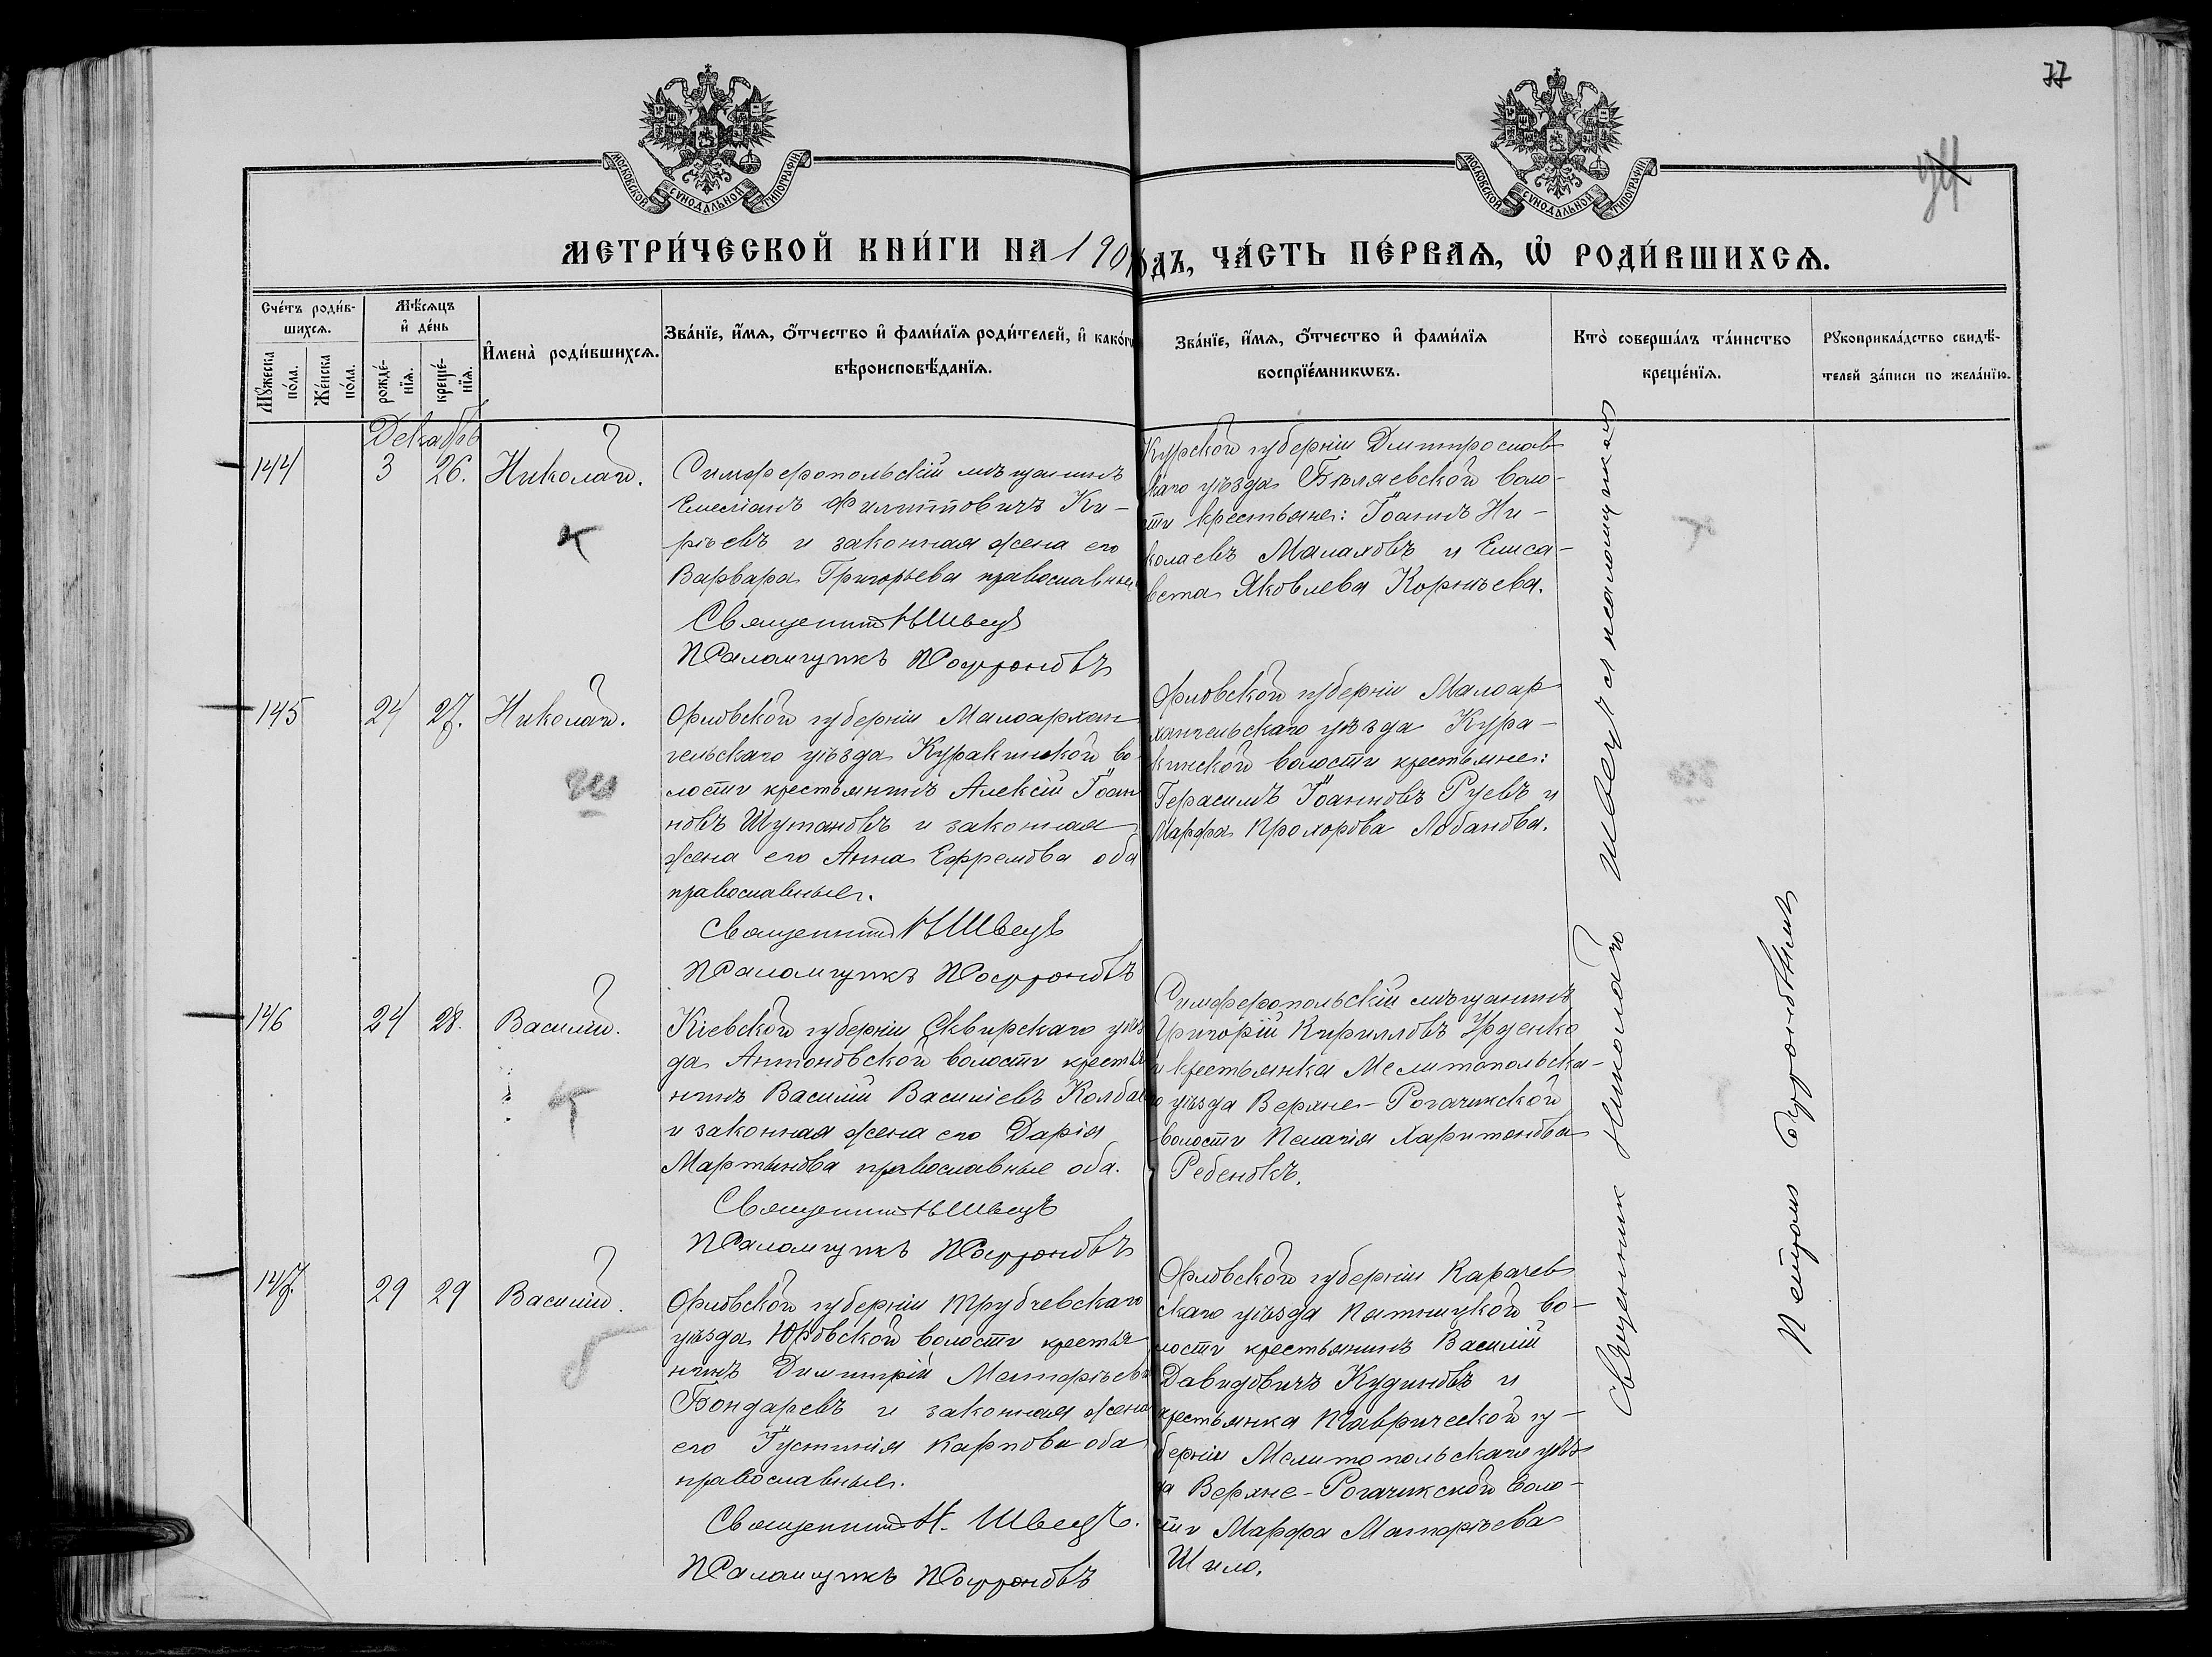 77
МОСКОВСКОЙ СѴНОДАЛЬНОЙ ТИПОГРАФІИ.
МОСКОВСКОЙ СѴНОДАЛЬНОЙ ТИПОГРАФІИ.
МЕТРИ́ЧЕСКОЙ КНИ́ГИ НА 190
ОДЪ, ЧА́СТЬ ПЕ́РВАѦ, Ѡ҆ РОДИ́ВШИХСѦ.
Сче́тъ роди́в-
шихсѧ.
Мꙋ́жеска по́ла.
Же́нска по́ла.
Мѣ́сѧцъ
и҆ де́нь
рожде́-
нїѧ.
креще́-
нїѧ.
И҆мена̀ роди́вшихсѧ.
Зва́нїе, и҆́мѧ, ѻ҆́тчество и҆ фами́лїѧ роди́телей, и҆ како́гѡ
вѣроисповѣ́данїѧ.
Зва́нїе, и҆́мѧ, ѻ҆́тчество и҆ фами́лїѧ
воспрїе́мникѡвъ.
Кто̀ соверша́лъ та́инство
креще́нїѧ.
Рꙋкоприкла́дство свидѣ́-
телей за́писи по жела́нїю.
Декабрь
144
3
26.
Николай.
Симферопольскій мѣщанинъ
Емеліанъ Филипповичъ Ки-
рѣевъ и законная жена его
Варвара Григорьева православные
Священникъ Н Швецъ
Псаломщикъ П Софроновъ
Курской губерніи Дмитрослав
скаго уѣзда Бѣляевской воло-
сти крестьяне: Іоаннъ Ни-
колаевъ Малаховъ и Елиса-
вета Яковлева Корнѣева.
145
24
27.
Николай.
Орловской губерніи Малоархан
гельскаго уѣзда Куракинской во
лости крестьянинъ Алексій Іоан
новъ Шутановъ и законная
жена его Анна Ефремова оба
православные.
Священникъ Н Швецъ
Псаломщикъ П Софроновъ
Орловской губерніи Малоар
хангельскаго уѣзда Кура-
кинской волости крестьяне:
Герасимъ Іоанновъ Руевъ и
Марфа Прохорова Лобанова.
146
24
28.
Василій.
Кіевской губерніи Сквирскаго уѣз
да Антоновской волости крестья
нинъ Василій Василіевъ Колба
и законная жена его Дарія
Мартынова православные оба.
Священникъ Н Швецъ
Псаломщикъ П Софроновъ
Симферопольскій мѣщанинъ
Григорій Кирилловъ Уруенко
и крестьянка Мелитопольска-
го уѣзда Верхне-Рогачикской
волости Пелагія Харитонова
Ребенокъ.
147.
29
29
Василій.
Орловской губерніи Трубчевскаго
уѣзда Юровской волости крестья
нинъ Димитрій Матѳіевъ
Бондаревъ и законная жена
его Іустинія Карпова оба
православные.
Священникъ Н. Швецъ.
Псаломщикъ П Софроновъ
Орловской губерніи Карачев
скаго уѣзда Пятницкой во-
лости крестьянинъ Василій
Давидовичъ Кудиновъ и
крестьянка Таврической гу-
берніи Мелитопольскаго уѣз
да Верхне-Рогачикской воло-
сти Марфа Матѳіева
Шило.
Священник Николай Швецъ и псаломщикомъ